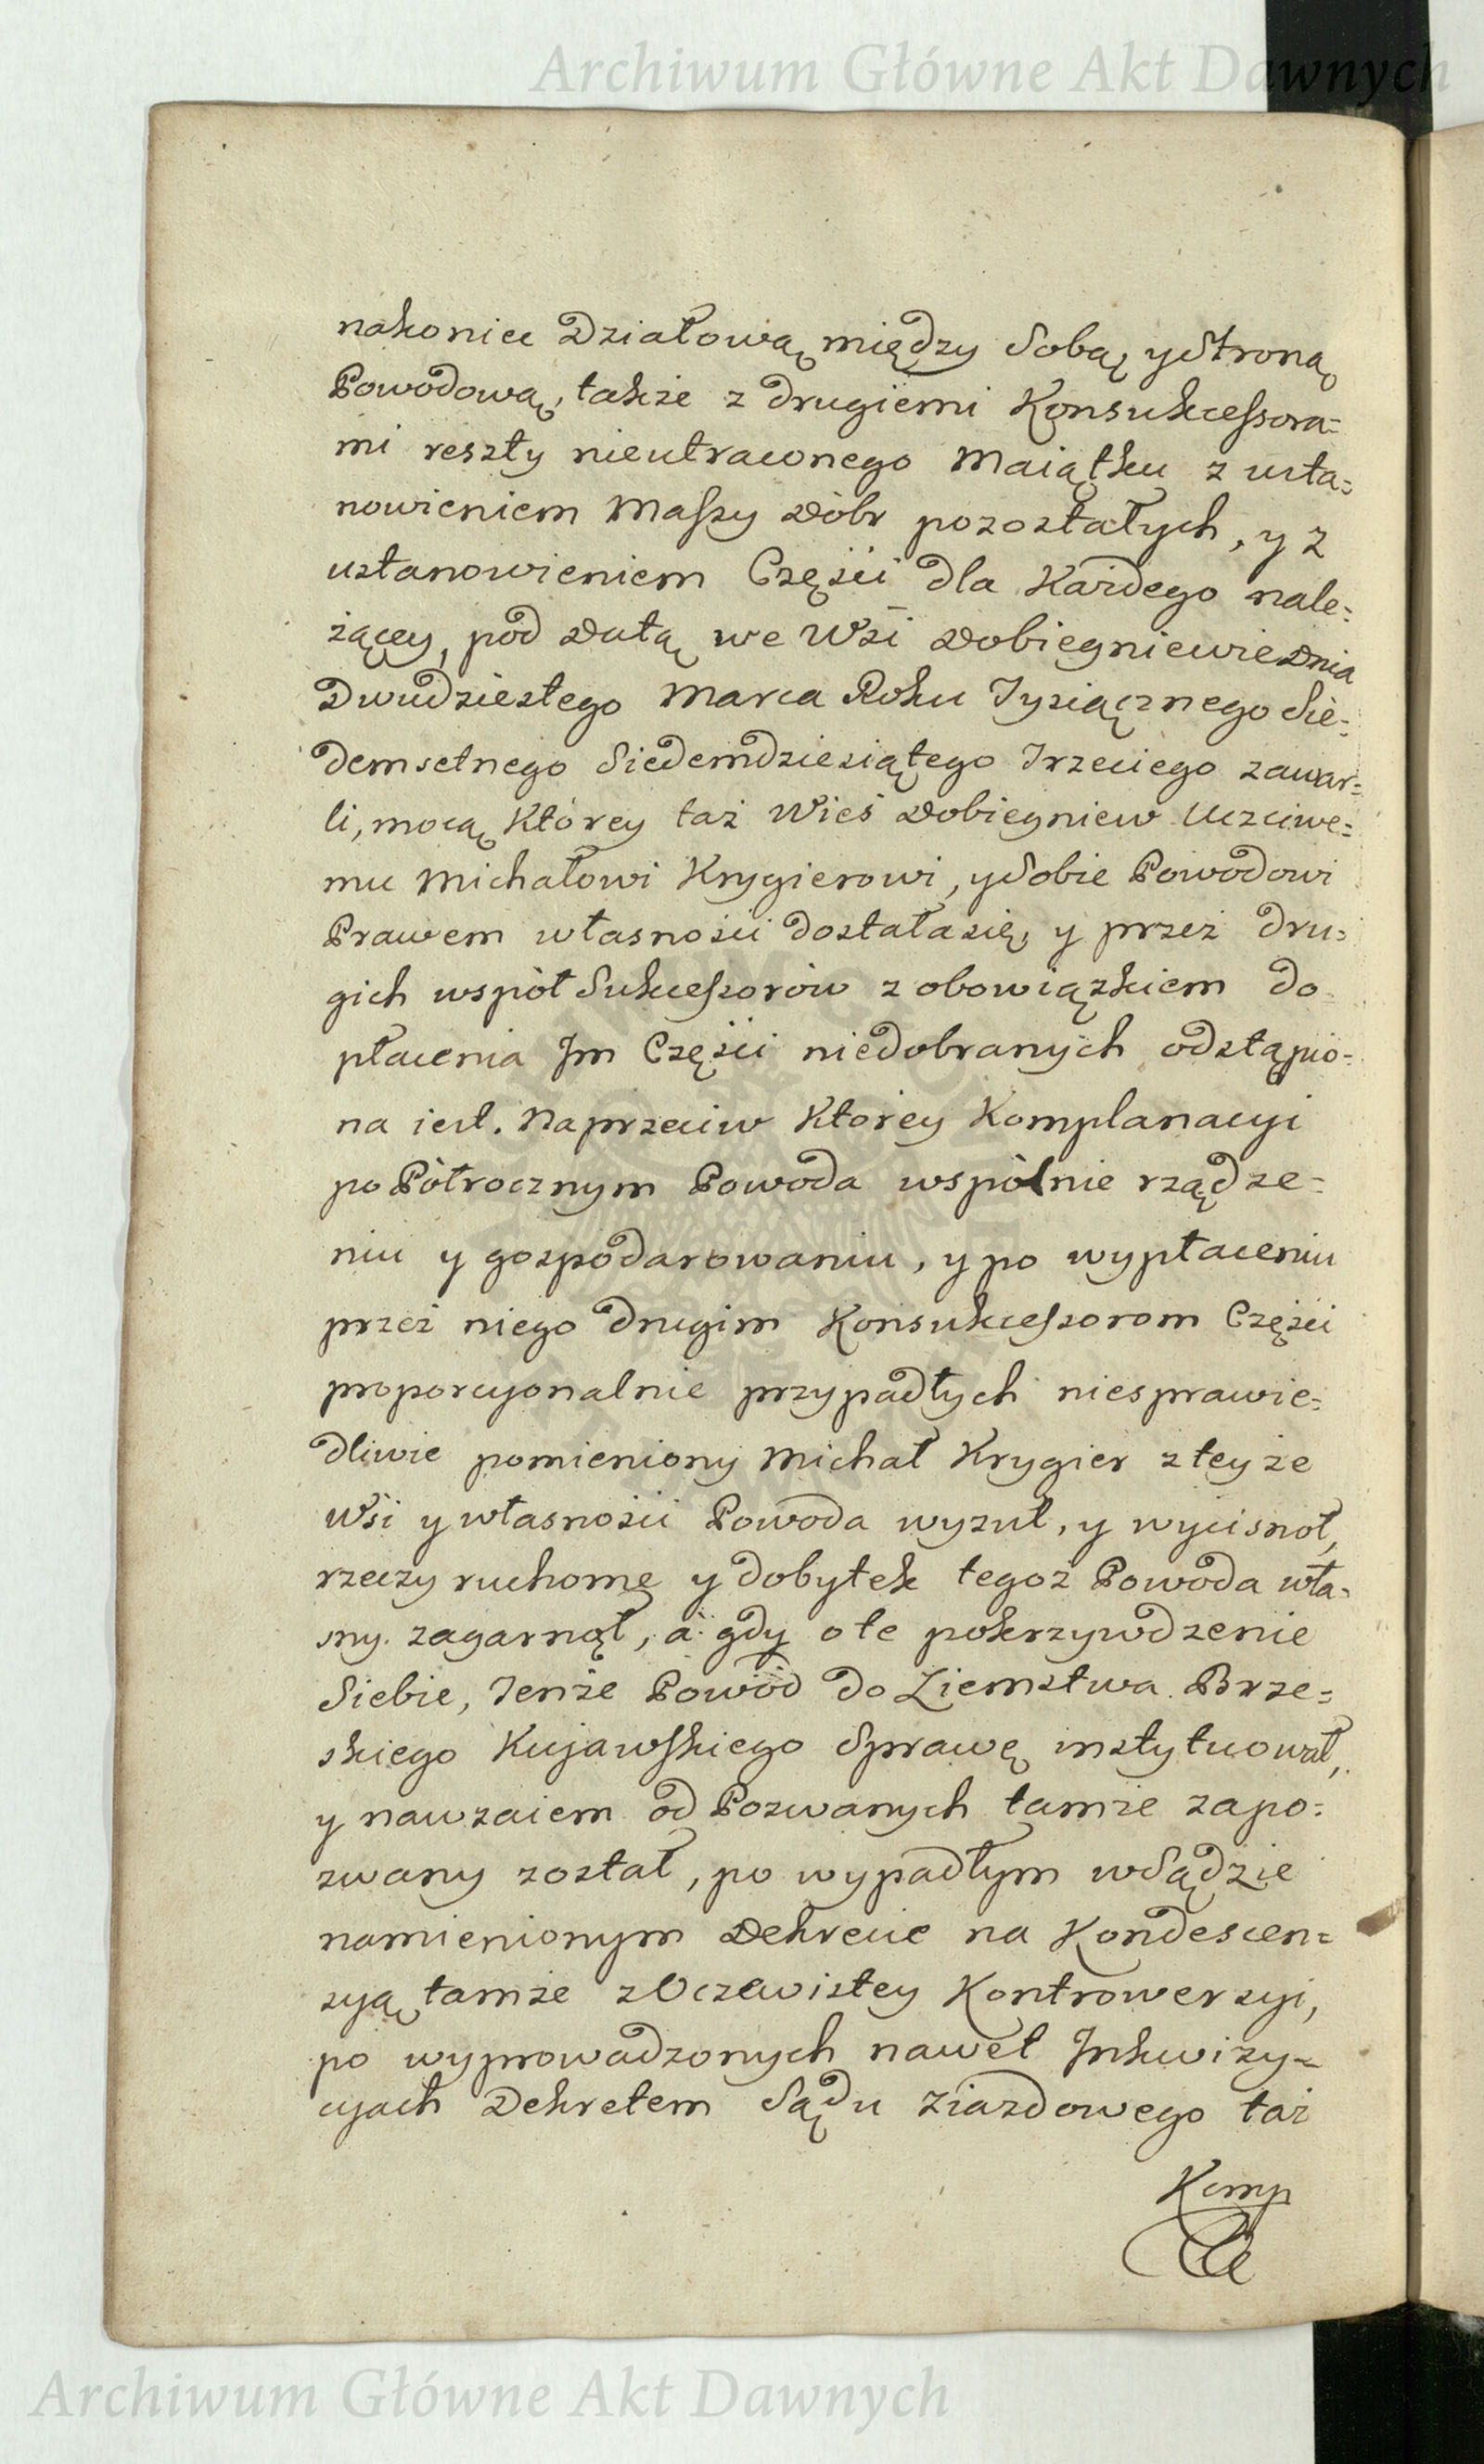 Archiwum Główne Akt Dawnych
nakoniec Działową między Sobą y Stroną
Powodową, także z drugiemi Konsukcessora=
mi reszty nieutraconego Maiątku z usta=
nowieniem Massy Dóbr pozostałych, y z
ustanowieniem Części dla Każdego nale=
żącey, pod Datą we Wsi Dobiegniewie Dnia
Dwudziestego Marca Roku Tysiącznego Sie=
demsetnego Siedemdziesiątego Trzeciego zawar=
li, mocą Którey taż Wieś Dobiegniew Uczciwe=
mu Michałowi Krygierowi, y Sobie Powodowi
Prawem własności dostała się, y przez dru=
gich współ Sukcessorów z obowiązkiem do
płacenia Im Części niedobranych odstąpio=
na iest. Naprzeciw Którey Komplanacyi
po Półrocznym Powoda wspólnie rządze=
niu y gospodarowaniu, y po wypłaceniu
przez niego drugim Konsukcessorom Części
proporcyonalnie przypadłych niesprawie=
dliwie pomieniony Michał Krygier z teyże
Wsi y własności Powoda wyzuł, y wycisnoł,
rzeczy ruchome y dobytek tegoż Powoda wła=
sny zagarnął, a gdy o te pokrzywdzenie
Siebie, Tenże Powód do Ziemstwa Brze=
skiego Kujawskiego Sprawę instytuował,
y nawzaiem od Pozwanych tamże zapo=
zwany został, po wypadłym w Sądzie
namienionym Dekrecie na Kondescen=
syą tamże z Oczewistey Kontrowersyi,
po wyprowadzonych nawet Inkwizy=
cyach Dekretem Sądu Ziazdowego taż
Komp
Archiwum Główne Akt Dawnych